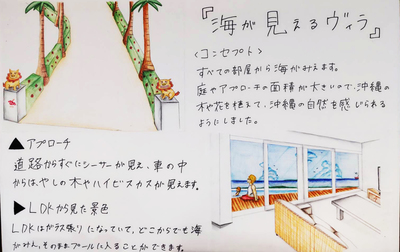 『海が見えるヴィラ』
〈コンセプト〉
すべての部屋から海がみえます。
庭やアプローチの面積が大きいので、沖縄の
木や花を植えて、沖縄の自然を感じられる
ようにしました。
▲ アプローチ
道路からすぐにシーサーが見え、車の中
からは、やしの木やハイビスカスが見えます。
▶ LDKから見た景色
LDKはガラス張りになっていて、どこからでも海
がみえ、そのままプールに入ることができます。